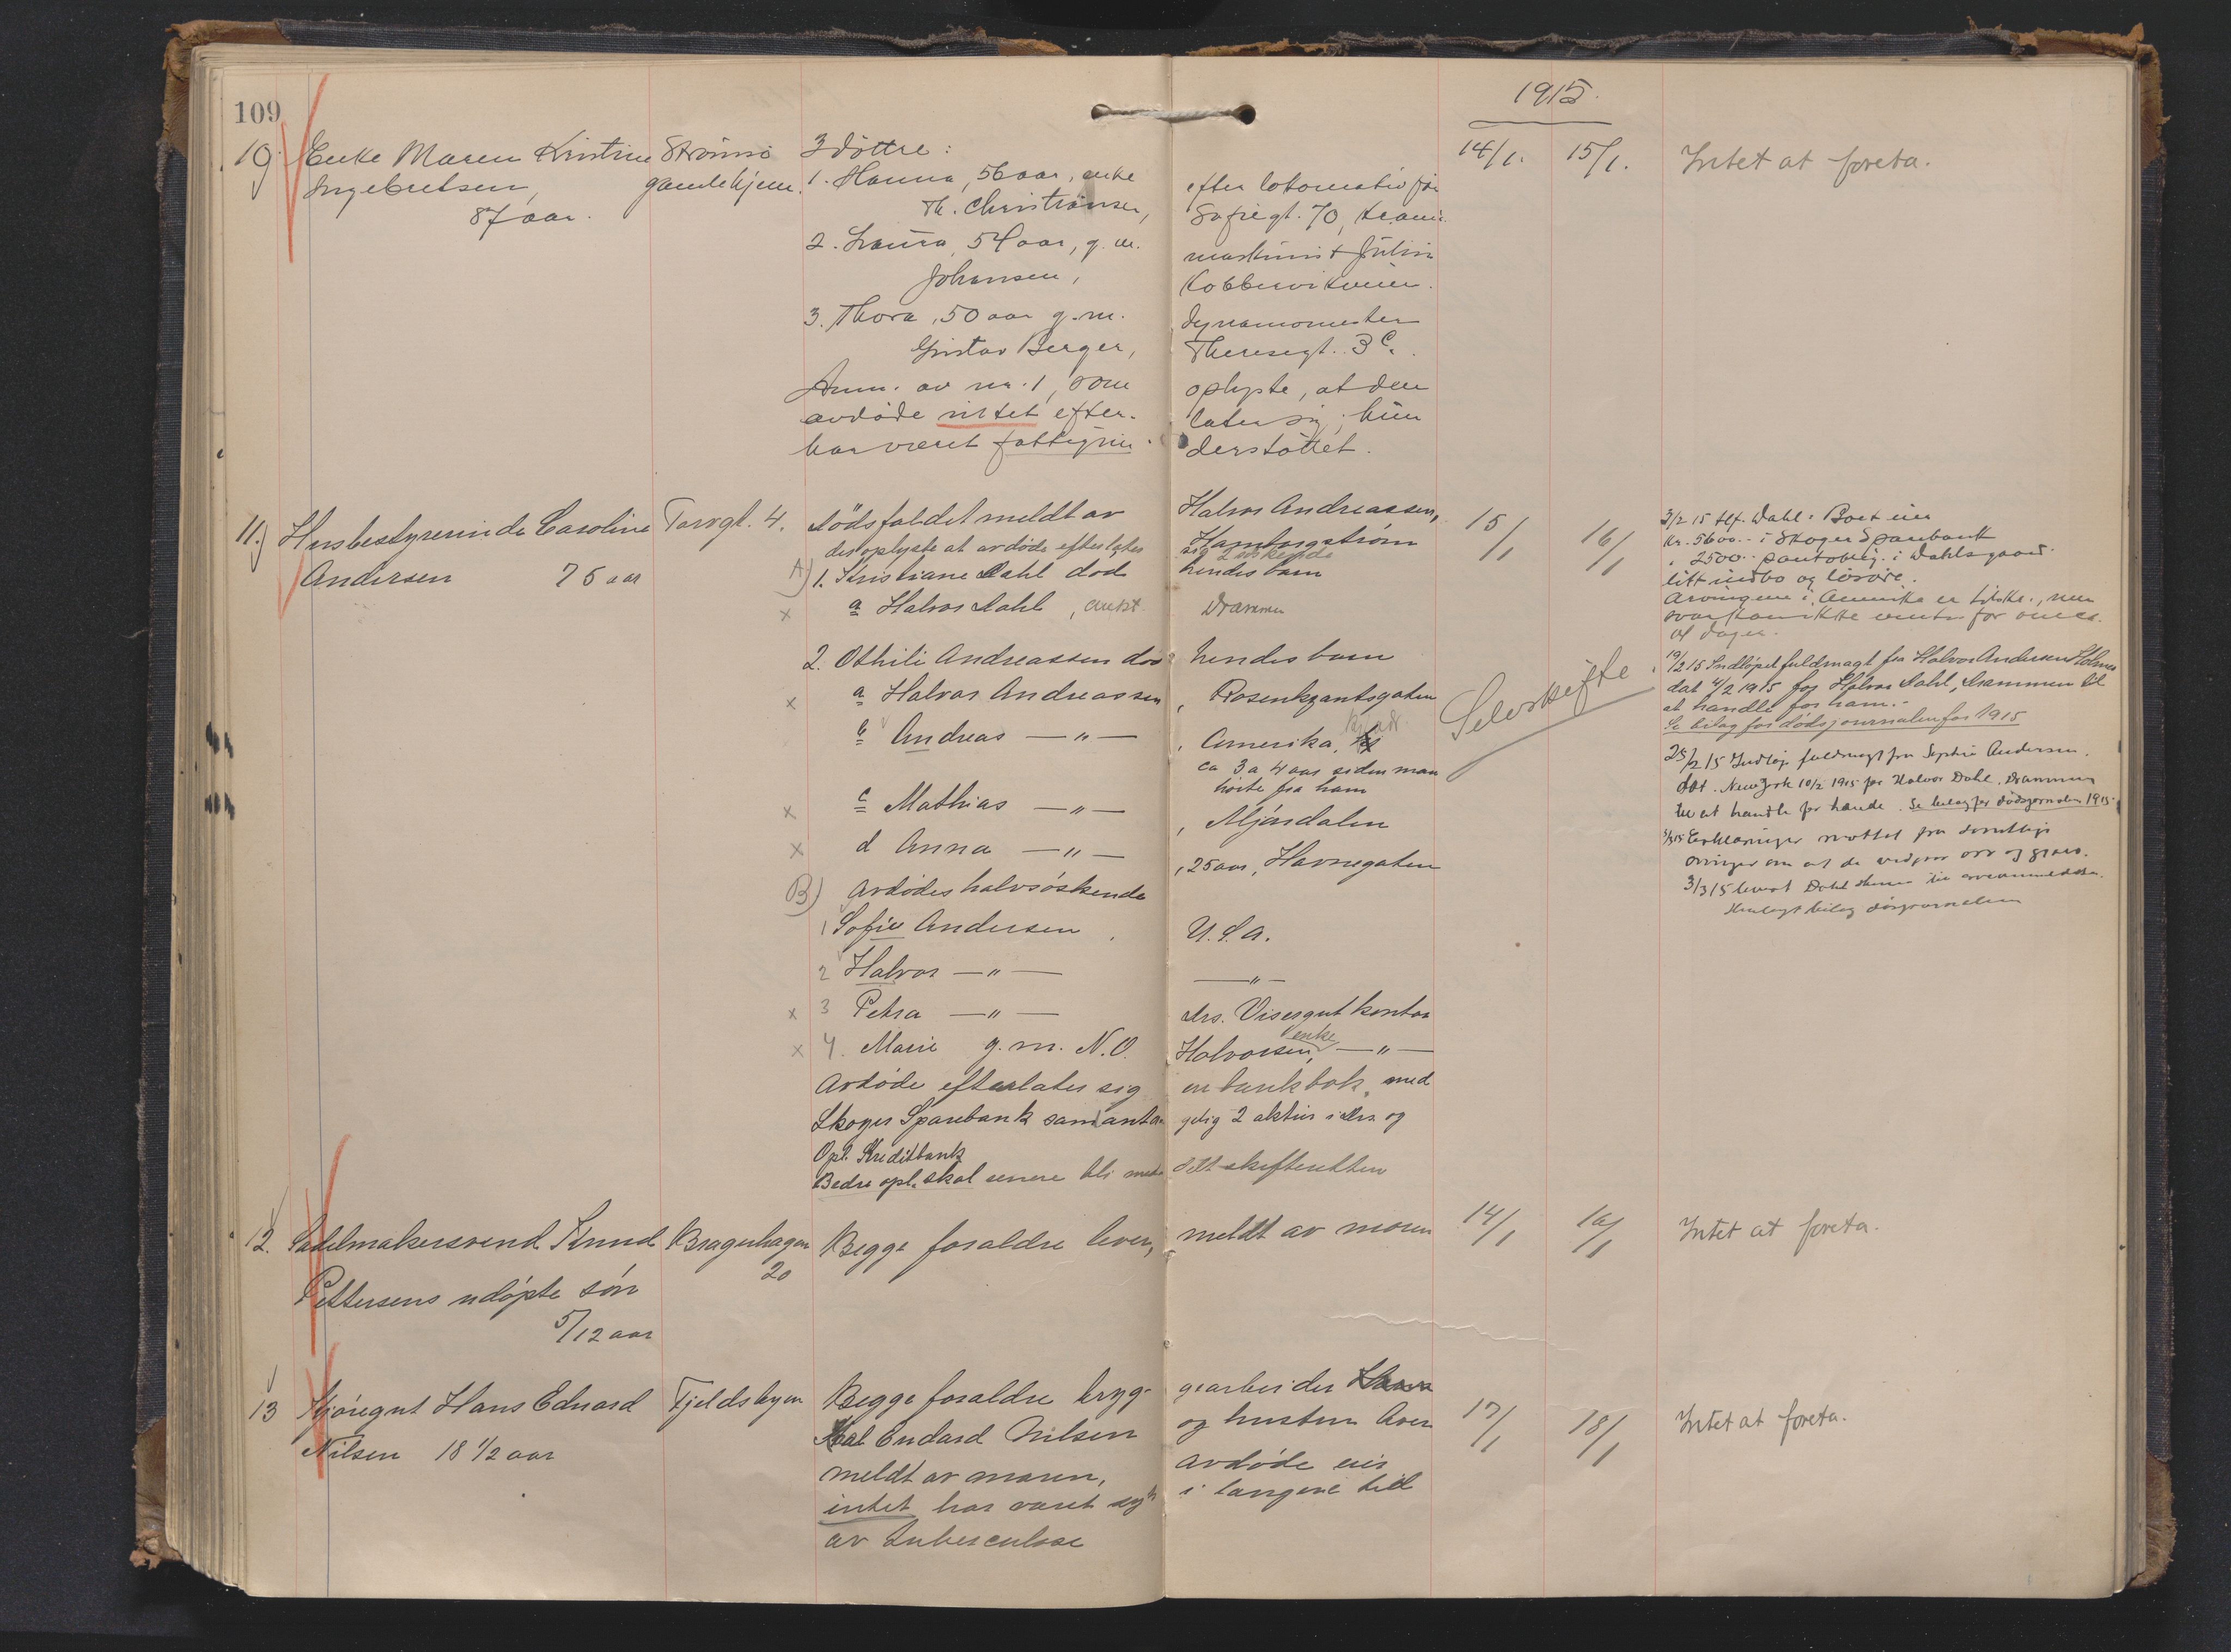 109
1915.
10. Enke Maren Kristine Strømsø 3 døttre: 14/1. 15/1. Intet at foreta.
Ingebretsen, gamlehjem. 1. Hanna, 56 aar, enke efter lokomotivfør
87 aar. Th. Christiansen, Sofiegt. 70, Kr.ania.
2. Laura, 54 aar, g. m. maskinist Julius
Johansen, Kobbervikveien.
3. Thora, 50 aar g. m. dynamomester
Gustav Berger, Theresegt. 3 c.
Anm. av nr. 1, som oplyste, at den
avdøde intet efter- later sig; hun
har været fattigun- derstøttet.
11.) Husbestyrerinde Caroline Torvgt. 4. Dødsfaldet meldt av Halvor Andreassen, 15/1 16/1
Andersen 76 aar
der oplyste at avdøde efterlater sig 2 søskende
A) 1. Kristiane Dahl død hendes barn
x a Halvor Dahl, Drammen
2. Othili Andreassen død hendes barn
x a Halvor Andreassen, Rosenkrantsgaten
b Andreas —"— , Amerika,
ca 3 a 4 aar siden man
hørte fra ham
x c Mathias —"— , Mjøndalen
x d Anna —"— , 25 aar, Havnegaten
B) Avdødes halvsøskende
1 Sofie Andersen, U.S.A.
2 Halvor —"— —"—
x 3 Petra —"— Drs. Visergutkontor
x 4. Marie g. m. N. O. Halvorsen, enke —"—
Avdøde efterlater sig en bankbok med
Skoger Sparebank samt antagelig 2 aktier i Drs. og
Opl. Kreditbank
Bedre opl. skal senere bli meddelt skifteretten
Selvskifte
3/2 15 tlf. Dahl: Boet eier
kr. 5600.- i Skoger Sparebank
" 2500.- pantoblig. i Dahls gaard
litt indbo og løsøre.
arvingene i Amerika er tilskr., men
svar kan ikke ventes før om ca.
19/2 15 Indløpet fuldmagt fra Halvor Andersen Holmes
dat 4/2 1915 for Halvor Dahl, Drammen til
at handle for ham.-
Se bilag for dødsjournalen for 1915
25/2 15 Indløp fuldmagt fra Sophie Andersen.
dat. New York 10/2 1915 for Halvor Dahl, Drammen
til at handle for hende. Se bilag for dødsjournalen 1915.
Erklæringer mottat fra samtlige
arvinger om at de vedgaar arv og gjæld.
3/3 15 levert Dahl
bilag dødsjournalen
12. Sadelmakersvend Knud Bragerhagen Begge foraldre lever, meldt av moren 14/1 16/1 Intet at foreta.
20
Pettersens udøpte søn
5/12 aar
13 Kjøregut Hans Edvard Fjeldsbyen Begge foraldre bryg- gearbeider 17/1 18/1 Intet at foreta.
Nilsen 18 1/2 aar Karl Endard Nilsen og hustru
meldt av moren, avdøde eier
intet har været syk i længere tid
av tuberculose